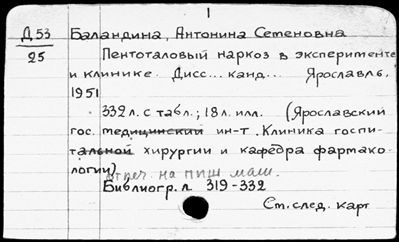 1
Д 53 Баландина, Антонина Семеновна
25 Пентоталовый наркоз в эксперименте
и клинике. Дисс... канд... Ярославль,
1951
332 л. с табл.; 18 л. илл. (Ярославский
гос. медицинский ин-т. Клиника госпи-
тальной хирургии и кафедра фармако-
логии)
отпеч. на пиш. маш.
Библиогр. л. 319-332
См. след. карт